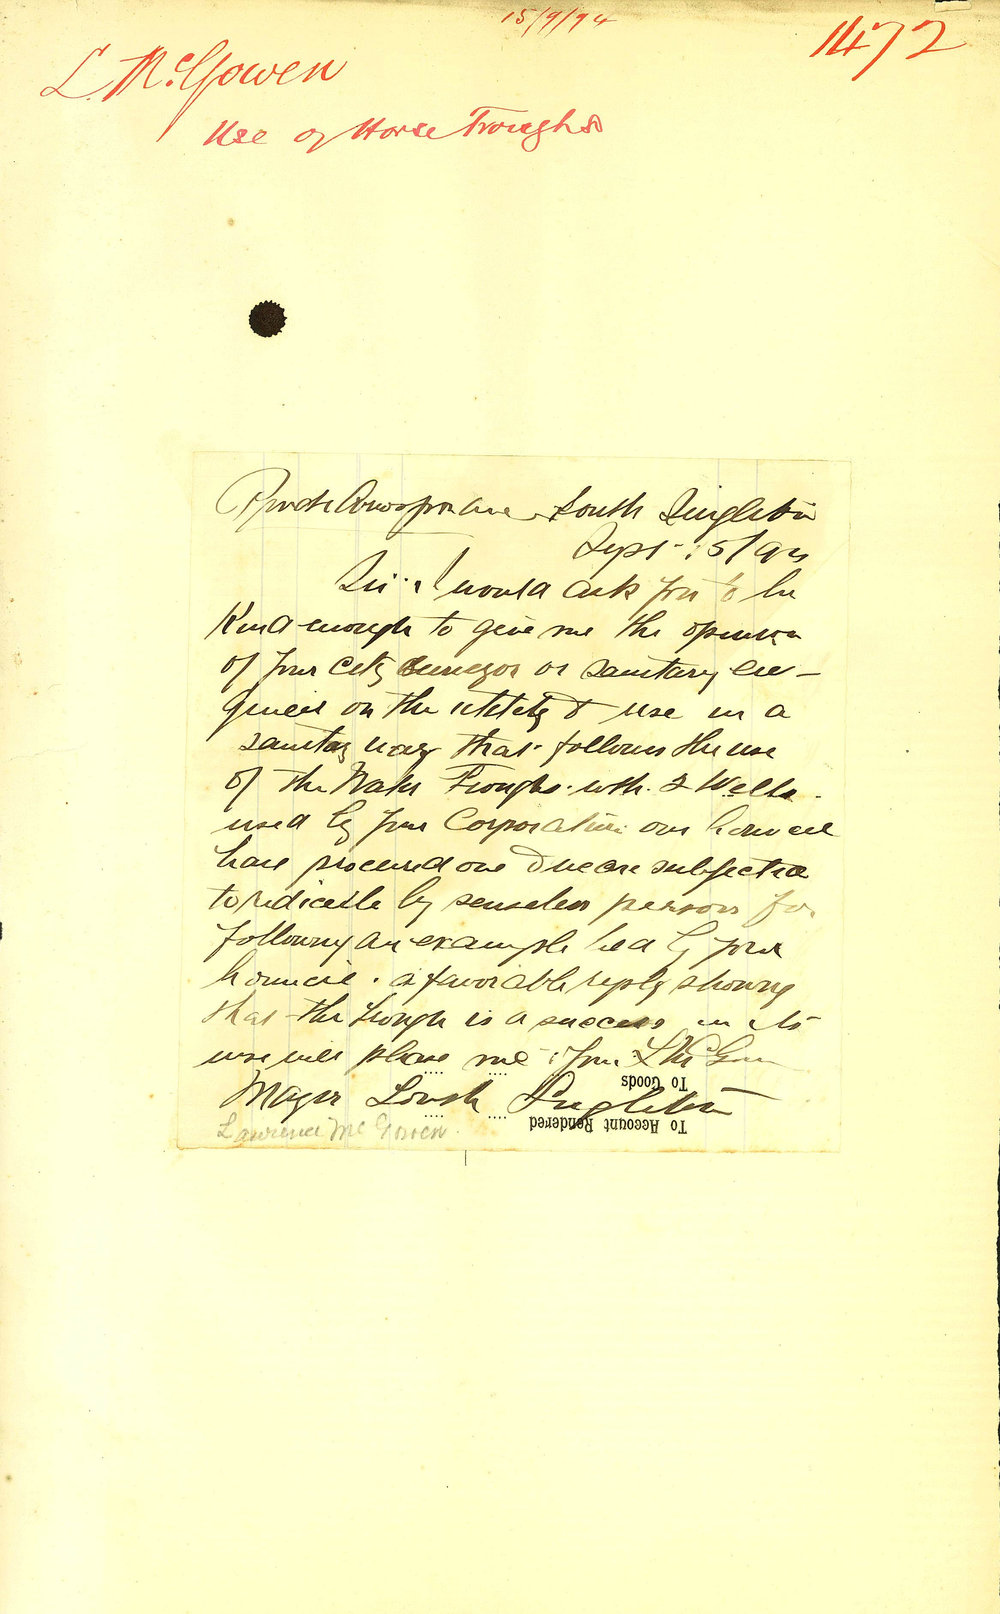 15/9/94
1472
L. McGowen
Use of Horse Troughs
Private Correspondence South Singleton
Sept. 15/94
Sir. I would ask you to be
Kind enough to give me the opinion
of your City Surveyor or sanitary en-
gineer on the utility & use in a
sanitary way that follows the use
of the Water Troughs with 2 Wells
used by your Corporation our Council
have procured one & we are subjected
to redicule by senseless persons for
following an example led by your
Council. a favorable reply showing
that the trough is a success in its
use will please me. Your L McGowen
To Goods
Mayor South Singleton
To Account Rendered
Lawrence McGowen